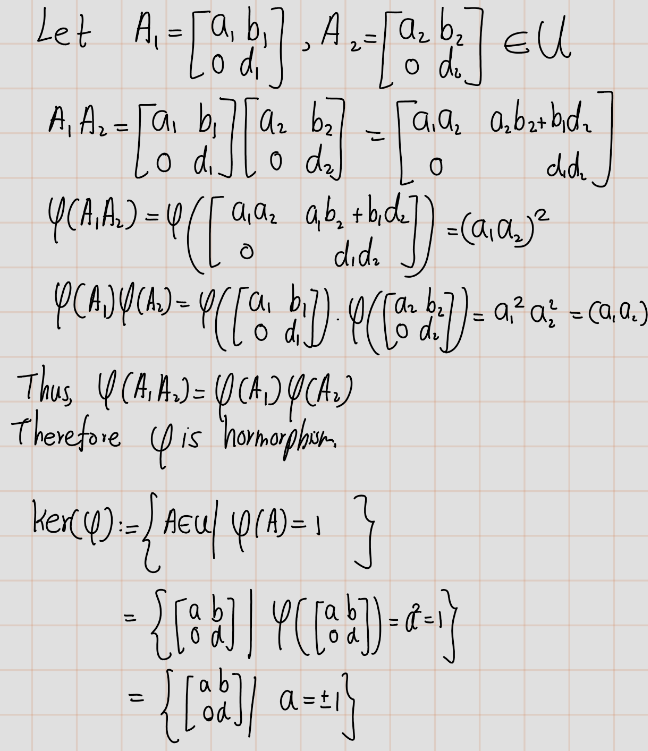 Let A₁ = [a₁ b₁; 0 d₁], A₂ = [a₂ b₂; 0 d₂] ∈ U
A₁A₂ = [a₁ b₁; 0 d₁][a₂ b₂; 0 d₂] = [a₁a₂ a₂b₂+b₁d₂; 0 d₁d₂]
φ(A₁A₂) = φ([a₁a₂ a₁b₂+b₁d₂; 0 d₁d₂]) = (a₁a₂)²
φ(A₁)φ(A₂) = φ([a₁ b₁; 0 d₁]) · φ([a₂ b₂; 0 d₂]) = a₁² a₂² = (a₁a₂)
Thus, φ(A₁A₂) = φ(A₁)φ(A₂)
Therefore φ is hormorphism.
ker(φ) := {A∈U | φ(A) = 1 }
= {[a b; 0 d] | φ([a b; 0 d]) = a² = 1}
= {[a b; 0 d] | a = ±1}